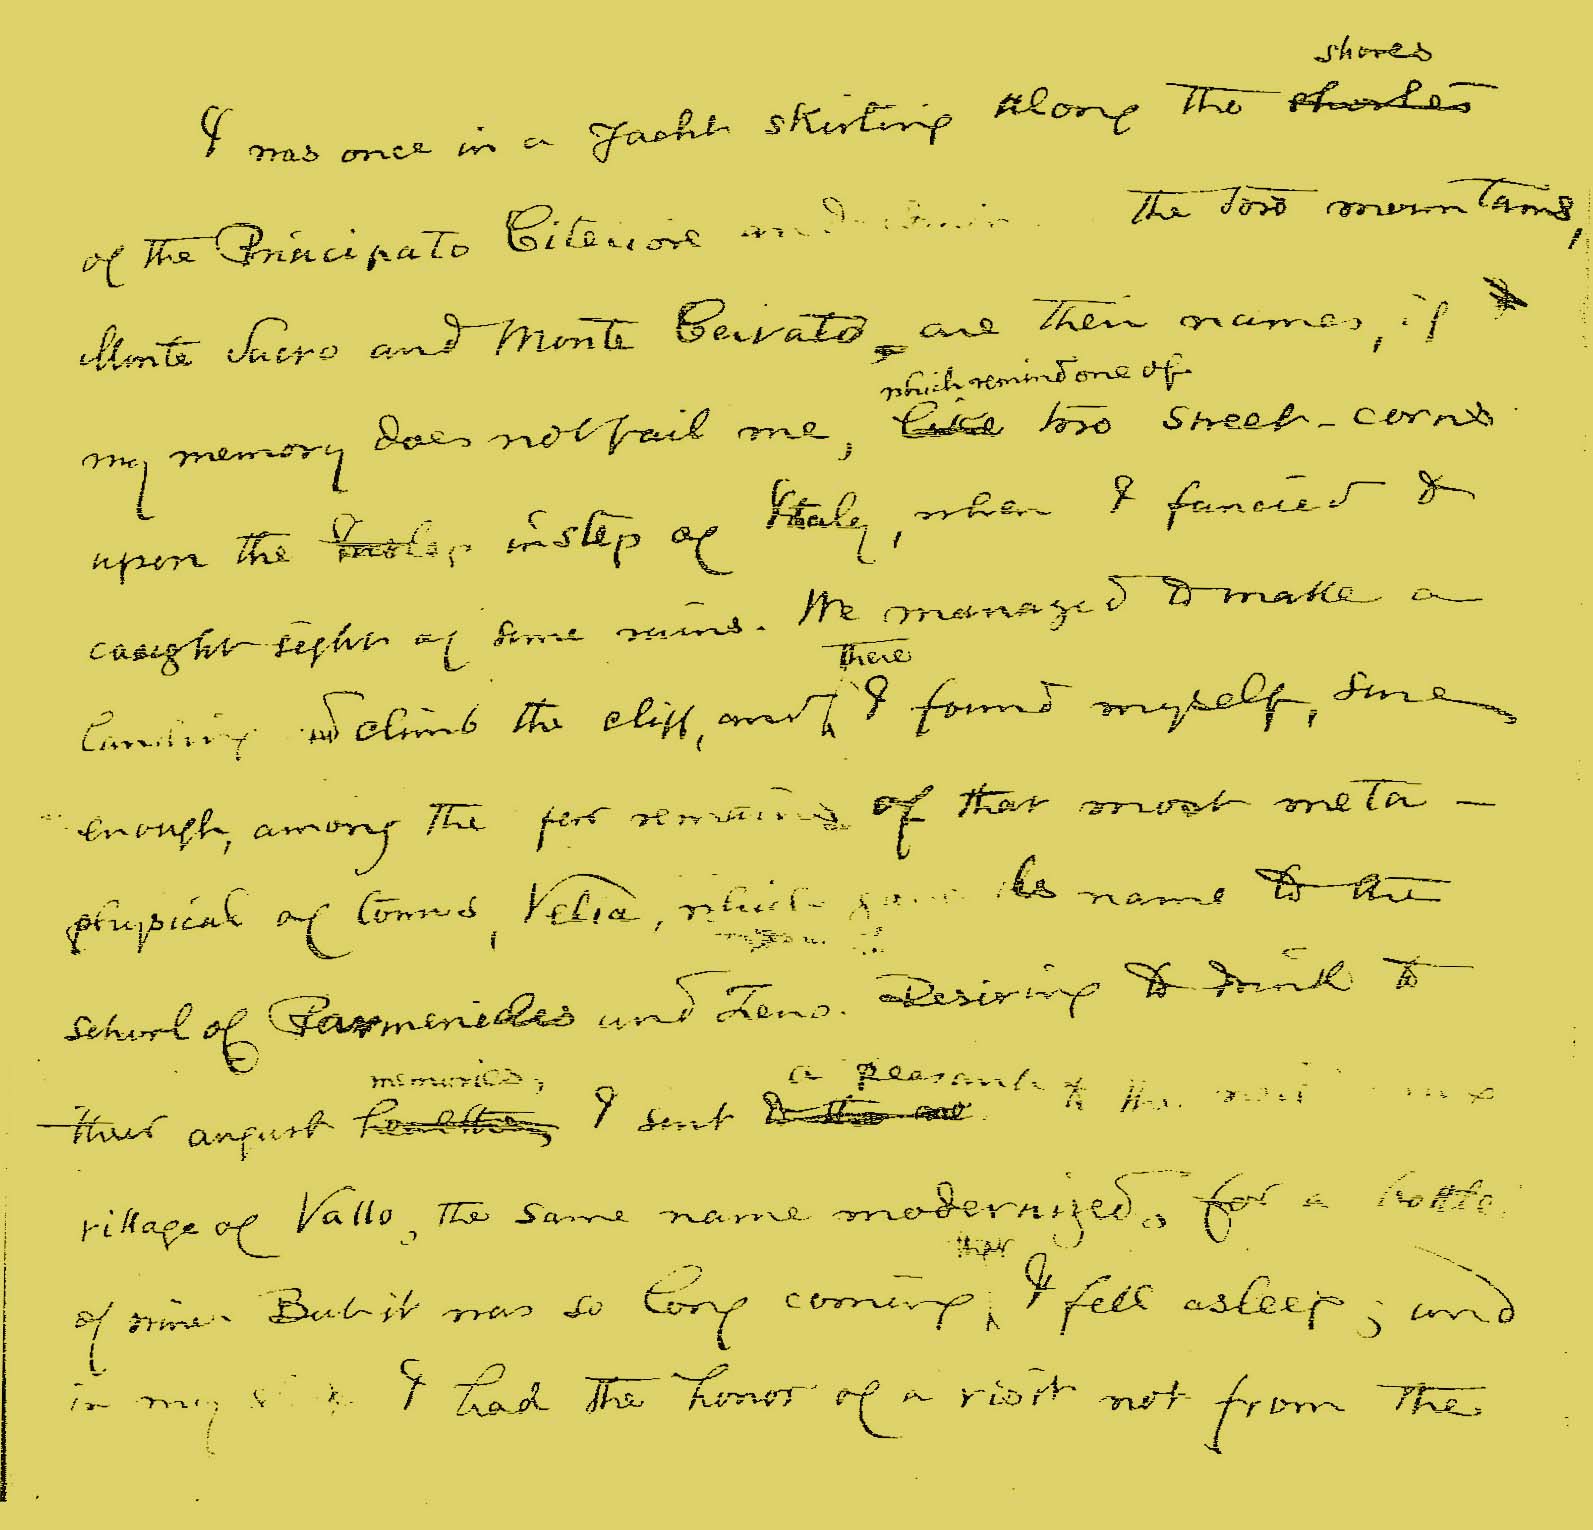 shores
I was once in a Yacht skirting along the shorles
of the Principato Citeriore and the two mountains,
Monte Sacro and Monte Cervato, are their names, if
which remind one of
my memory does not fail me, like two street-corners
upon the instep of Italy, when I fancied I
caught sight of some ruins. We managed to make a
there
landing and climb the cliff, and I found myself, sure
enough, among the few remains of that most meta-
physical of towns, Velia, which gave its name to the
school of Parmenides and Zeno. Desiring to drink to
memories, a peasant to the
their august I sent to the
village of Vallo, the same name modernized, for a bottle
that
of wine. But it was so long coming, I fell asleep; and
in my I had the honor of a visit not from the